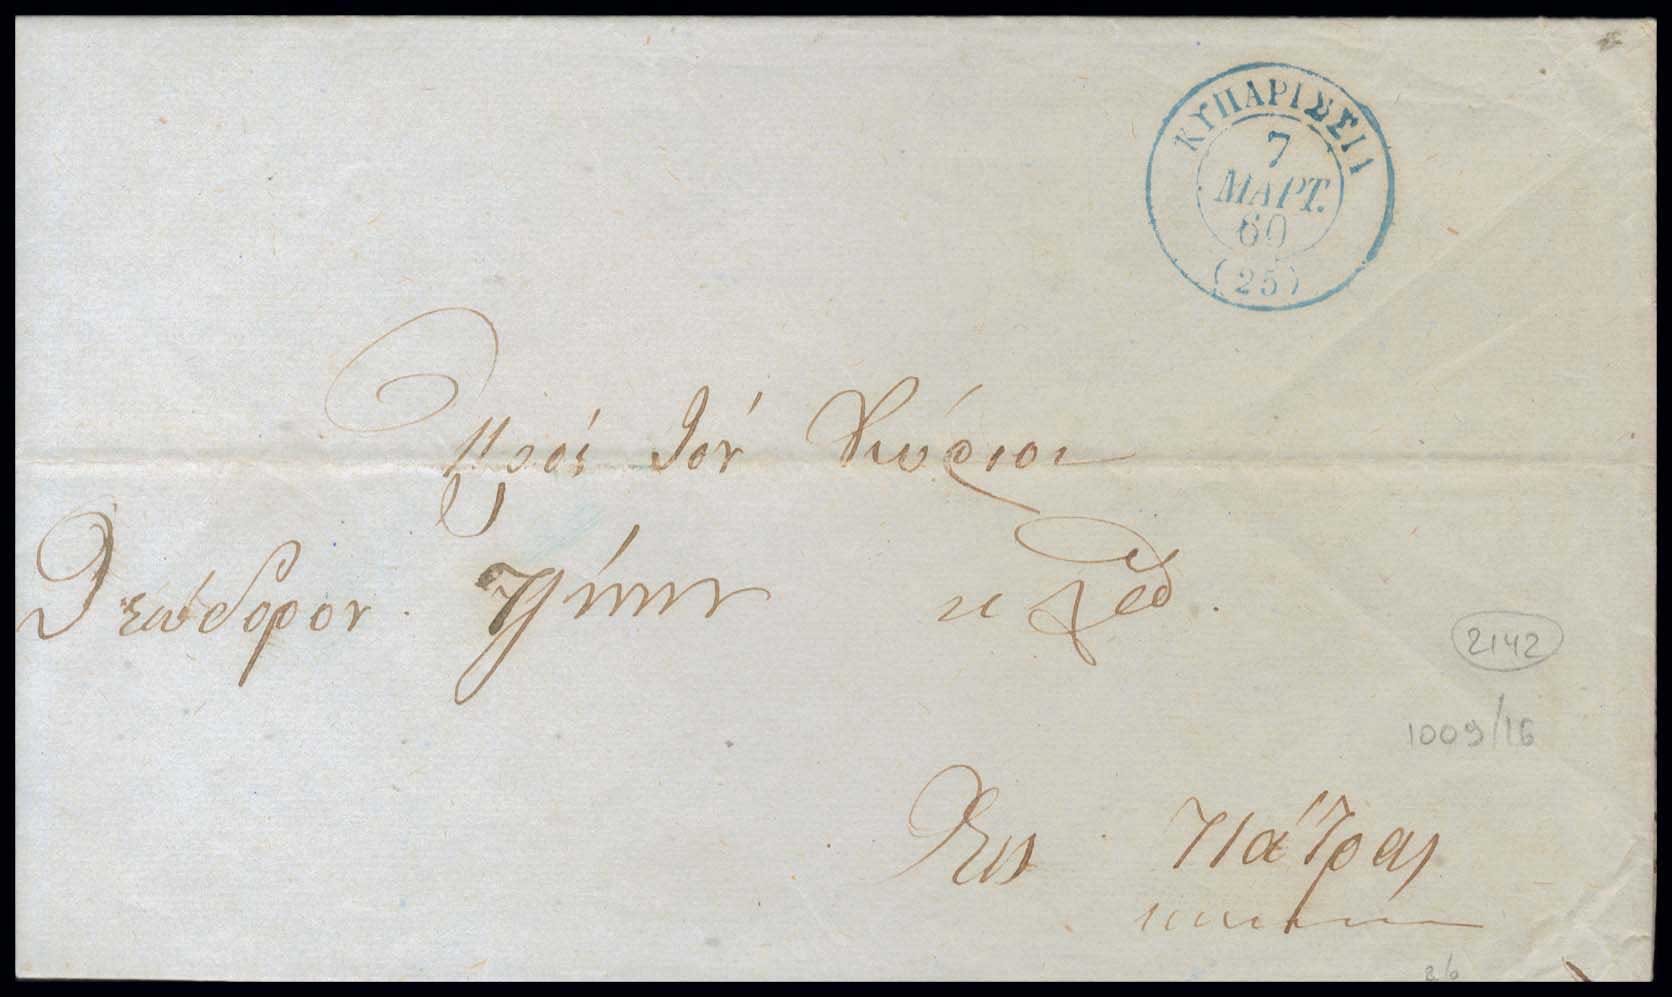 ΚΥΠΑΡΙΣΣΙΑ
7
ΜΑΡΤ.
60
(25)
Πρός τόν Κύριον
Θεόδορον
2142
1009/16
Εις Πάτρας